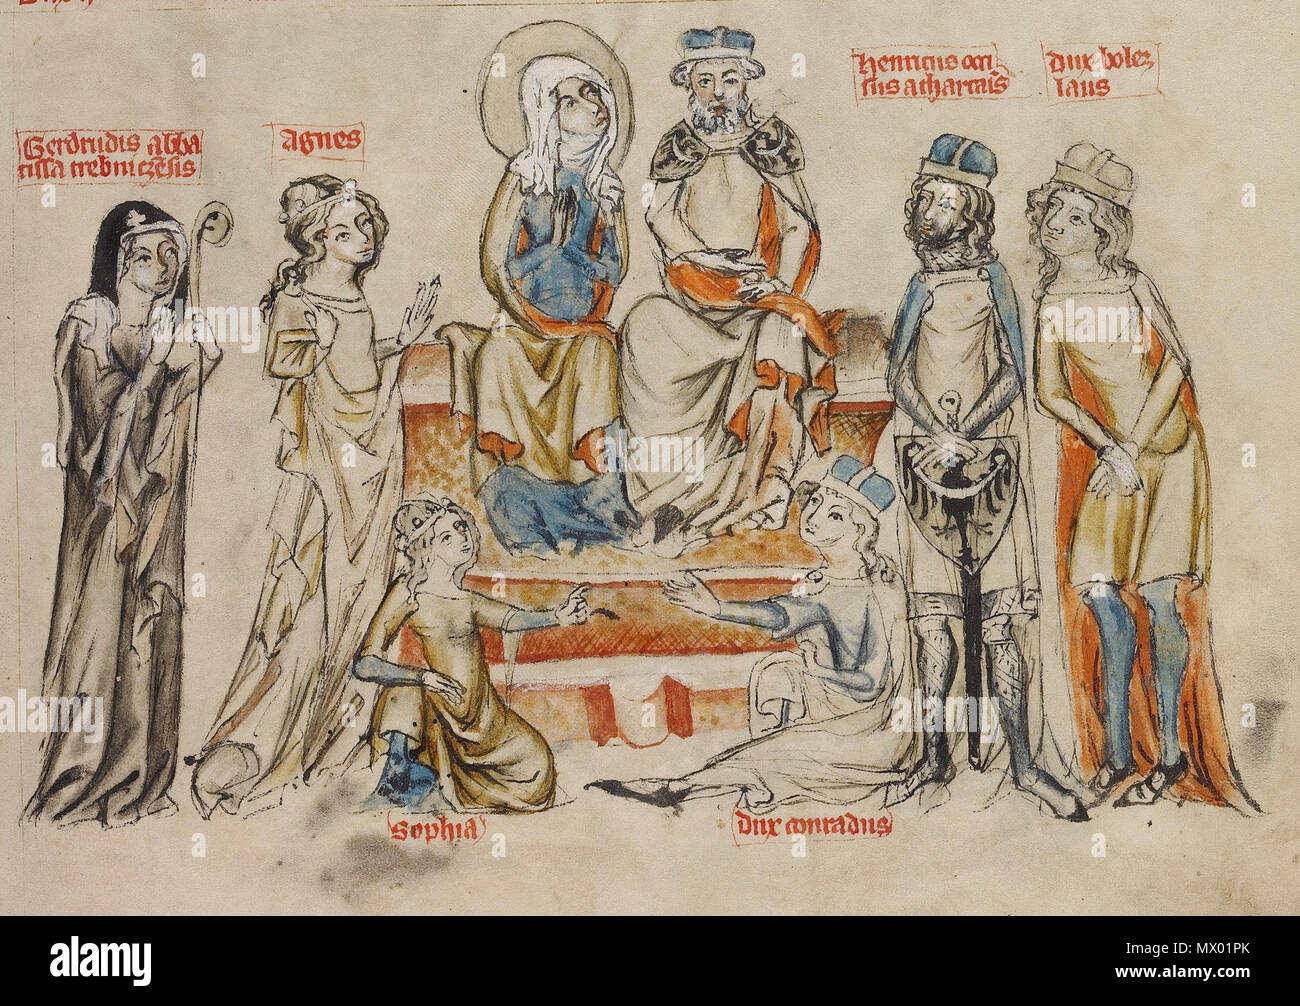 Gerdrudis abba
tissa trebniczēsis
Agnes
Henricus occi
sus a thartaris
dux bolez
laus
Sophia
dux conradus
alamy
a
alamy
Image ID: MX01PK
www.alamy.com